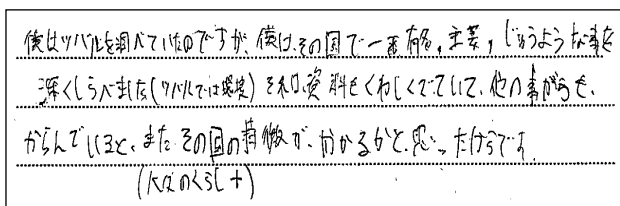 僕はツバルを調べていたのですが、僕は、その国で一番有名,主要,じゅうような事を
深くしらべました(ツバルでは環境)それは、資料もくわしくでていて、他の事がらも、
からんでいると、また、その国の特徴が、わかるかと、思ったからです。
(人々のくらし+)